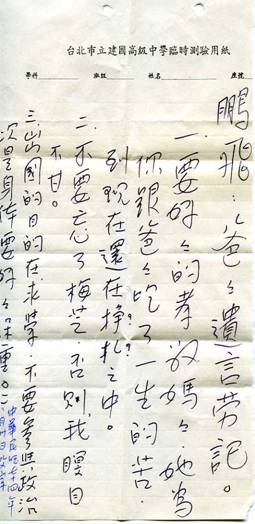 台北市立建國高級中學臨時測驗用紙
學科 班級 姓名 座號
鵬飛:爸々遺言劳記。
一.要好々的孝敬媽々.她為
你跟爸々吃了一生的苦.
到現在還在掙扎之中。
二.不要忘了梅芝.否則我瞑目
不甘。
三.出國的目的在求學.不要參與政治
次是身体要好々保重。
中華民國七十四年